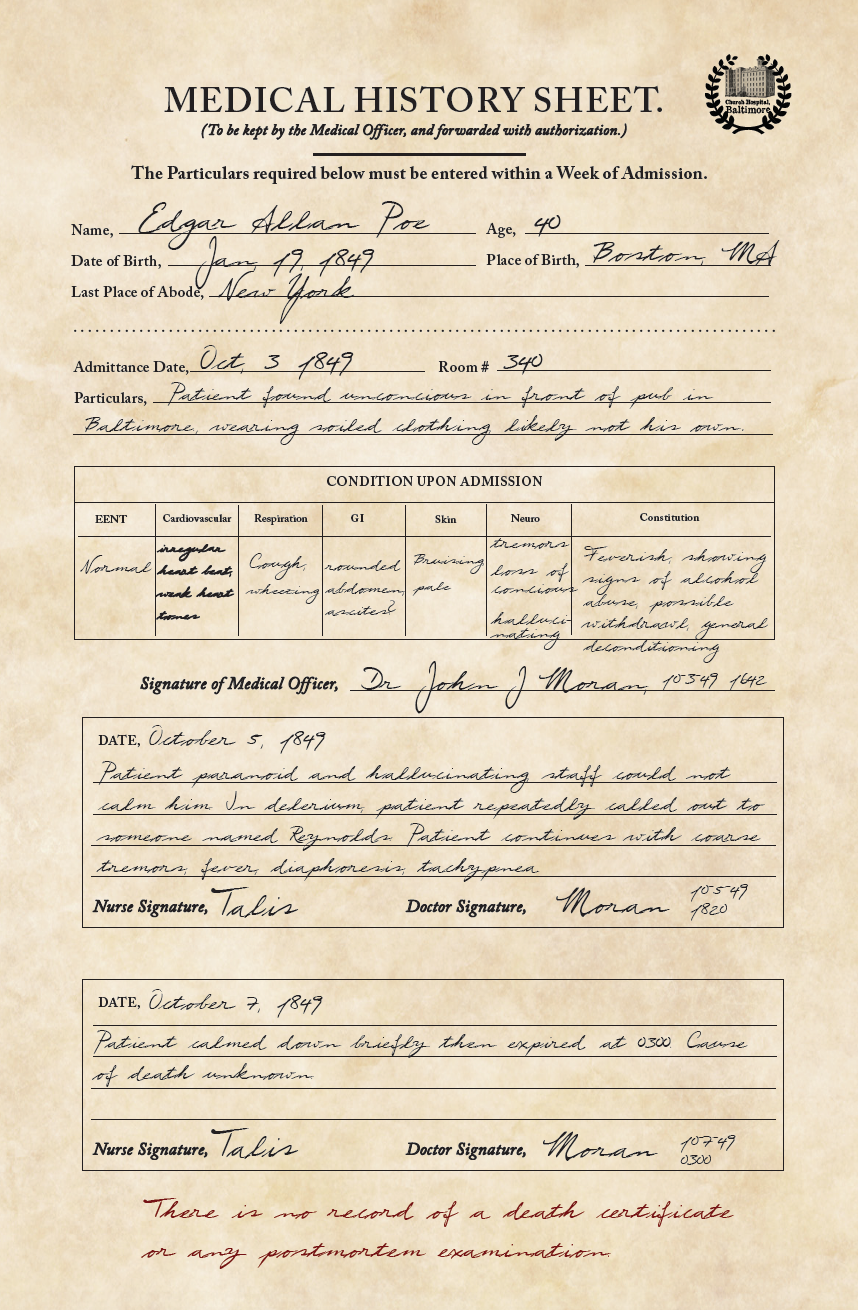 MEDICAL HISTORY SHEET.
(To be kept by the Medical Officer, and forwarded with authorization.)
Church Hospital,
Baltimore
The Particulars required below must be entered within a Week of Admission.
Name, Edgar Allan Poe Age, 40
Date of Birth, Jan 19, 1849 Place of Birth, Boston, MA
Last Place of Abode, New York
Admittance Date, Oct, 3 1849 Room # 340
Particulars, Patient found unconcious in front of pub in
Baltimore, wearing soiled clothing, likely not his own.
CONDITION UPON ADMISSION
EENT Cardiovascular Respiration GI Skin Neuro Constitution
Normal
irregular
heart beat,
weak heart
tones
Cough,
wheezing
rounded
abdomen,
ascites?
Bruising
pale
tremors
loss of
concious
halluci-
nating
Feverish, showing
signs of alcohol
abuse, possible
withdrawl, general
deconditioning
Signature of Medical Officer, Dr John J Moran, 10-3-49 1642
DATE, October 5, 1849
Patient paranoid and hallucinating, staff could not
calm him. In delerium, patient repeatedly called out to
someone named Reynolds. Patient continues with coarse
tremors, fever, diaphoresis, tachypnea
Nurse Signature, Talis Doctor Signature, Moran 10-5-49
1820
DATE, October 7, 1849
Patient calmed down briefly then expired at 0300 Cause
of death unknown.
Nurse Signature, Talis Doctor Signature, Moran 10-7-49
0300
There is no record of a death certificate
or any postmortem examination.